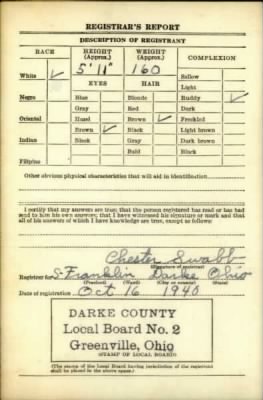 REGISTRAR'S REPORT
DESCRIPTION OF REGISTRANT
RACE HEIGHT (Approx.) WEIGHT (Approx.) COMPLEXION
5' 11" 160
White ✓ Sallow
EYES HAIR Light
Negro Blue Blonde Ruddy ✓
Gray Red Dark
Oriental Hazel Brown ✓ Freckled
Brown ✓ Black Light brown
Indian Black Gray Dark brown
Bald Black
Filipino
Other obvious physical characteristics that will aid in identification
I certify that my answers are true; that the person registered has read or has had
read to him his own answers; that I have witnessed his signature or mark and that
all of his answers of which I have knowledge are true, except as follows:
Chester Swabb
(Signature of registrar)
Registrar for S. Franklin Darke Ohio
(Precinct) (Ward) (City or county) (State)
Date of registration Oct 16 1940
DARKE COUNTY
Local Board No. 2
Greenville, Ohio
(STAMP OF LOCAL BOARD)
(The stamp of the Local Board having jurisdiction of the registrant
shall be placed in the above space.)